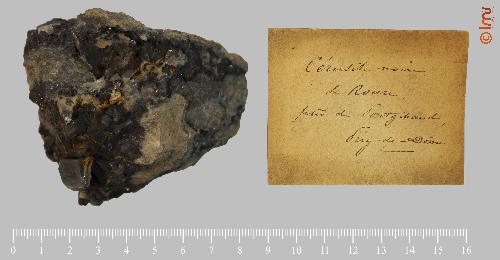 Cérusite noire
de Roure,
près de Pontgibaud,
Puy-de-Dôme.
0 1 2 3 4 5 6 7 8 9 10 11 12 13 14 15 16
© lmu